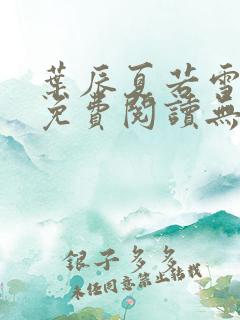 葉辰夏若雪
免費閱讀無
銀子多多
未經同意禁止轉載